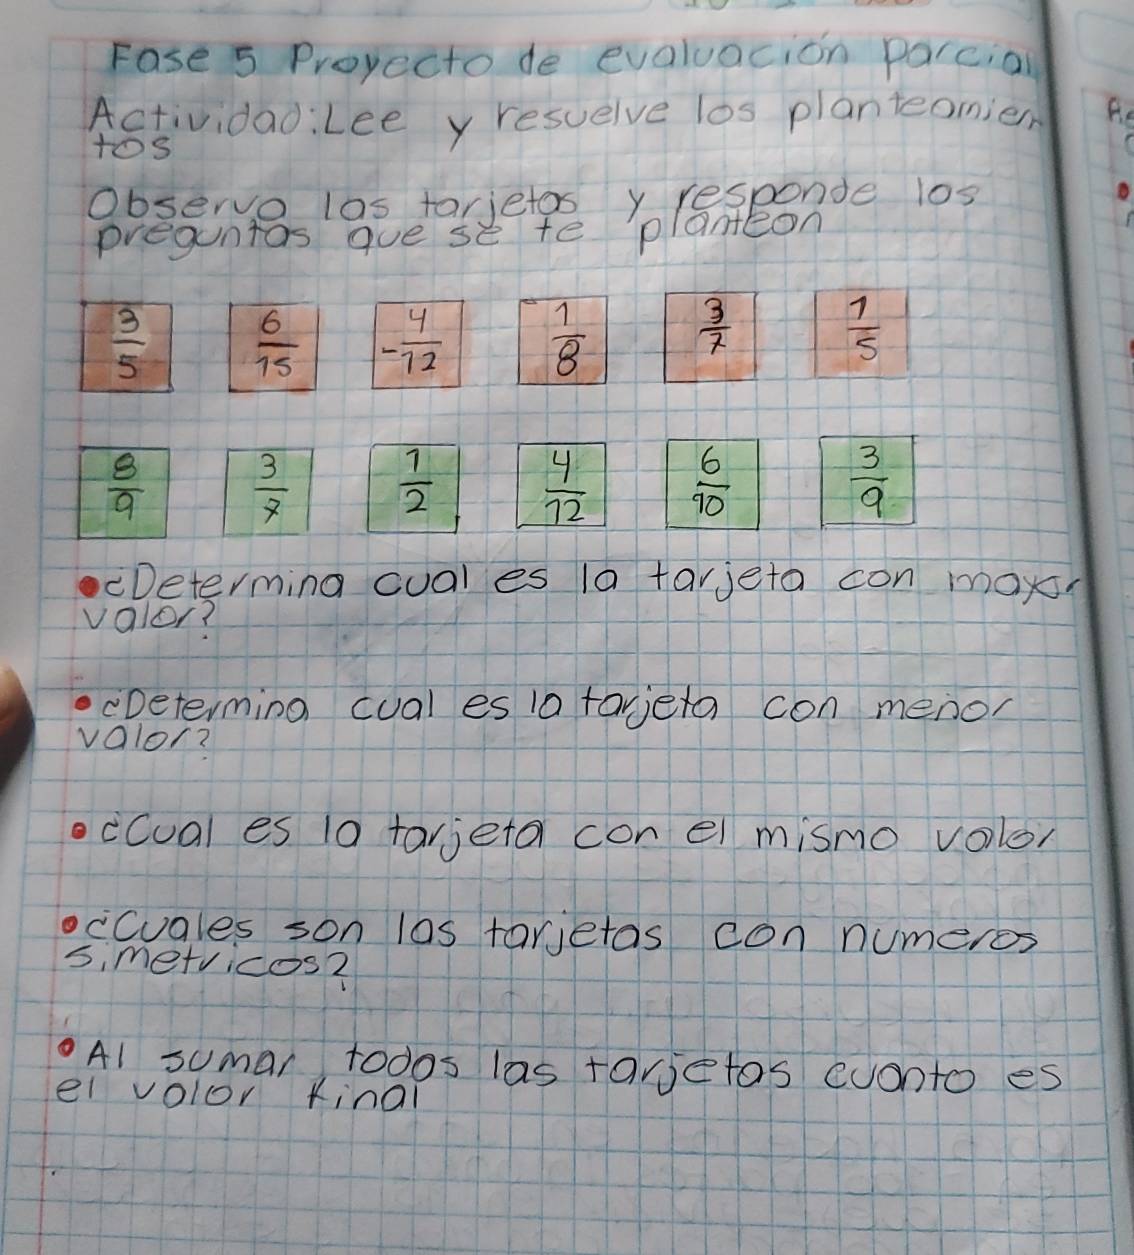 Fase 5 Proyecto de evaluación parcial
Actividad: Lee y resuelve los planteamien
tos
Observa las tarjetas y responde los
preguntas que se te plantean
3/5 6/15 -4/12 -1/8 3/7 1/5
8/9 3/7 1/2 4/12 6/10 3/9
¿Determina cual es la tarjeta con mayor
valor?
¿Determina cual es la tarjeta con menor
valor?
¿Cual es la tarjeta con el mismo valor
¿Cuales son las tarjetas con numeros
simetricos?
Al sumar todas las tarjetas cuanto es
el valor final